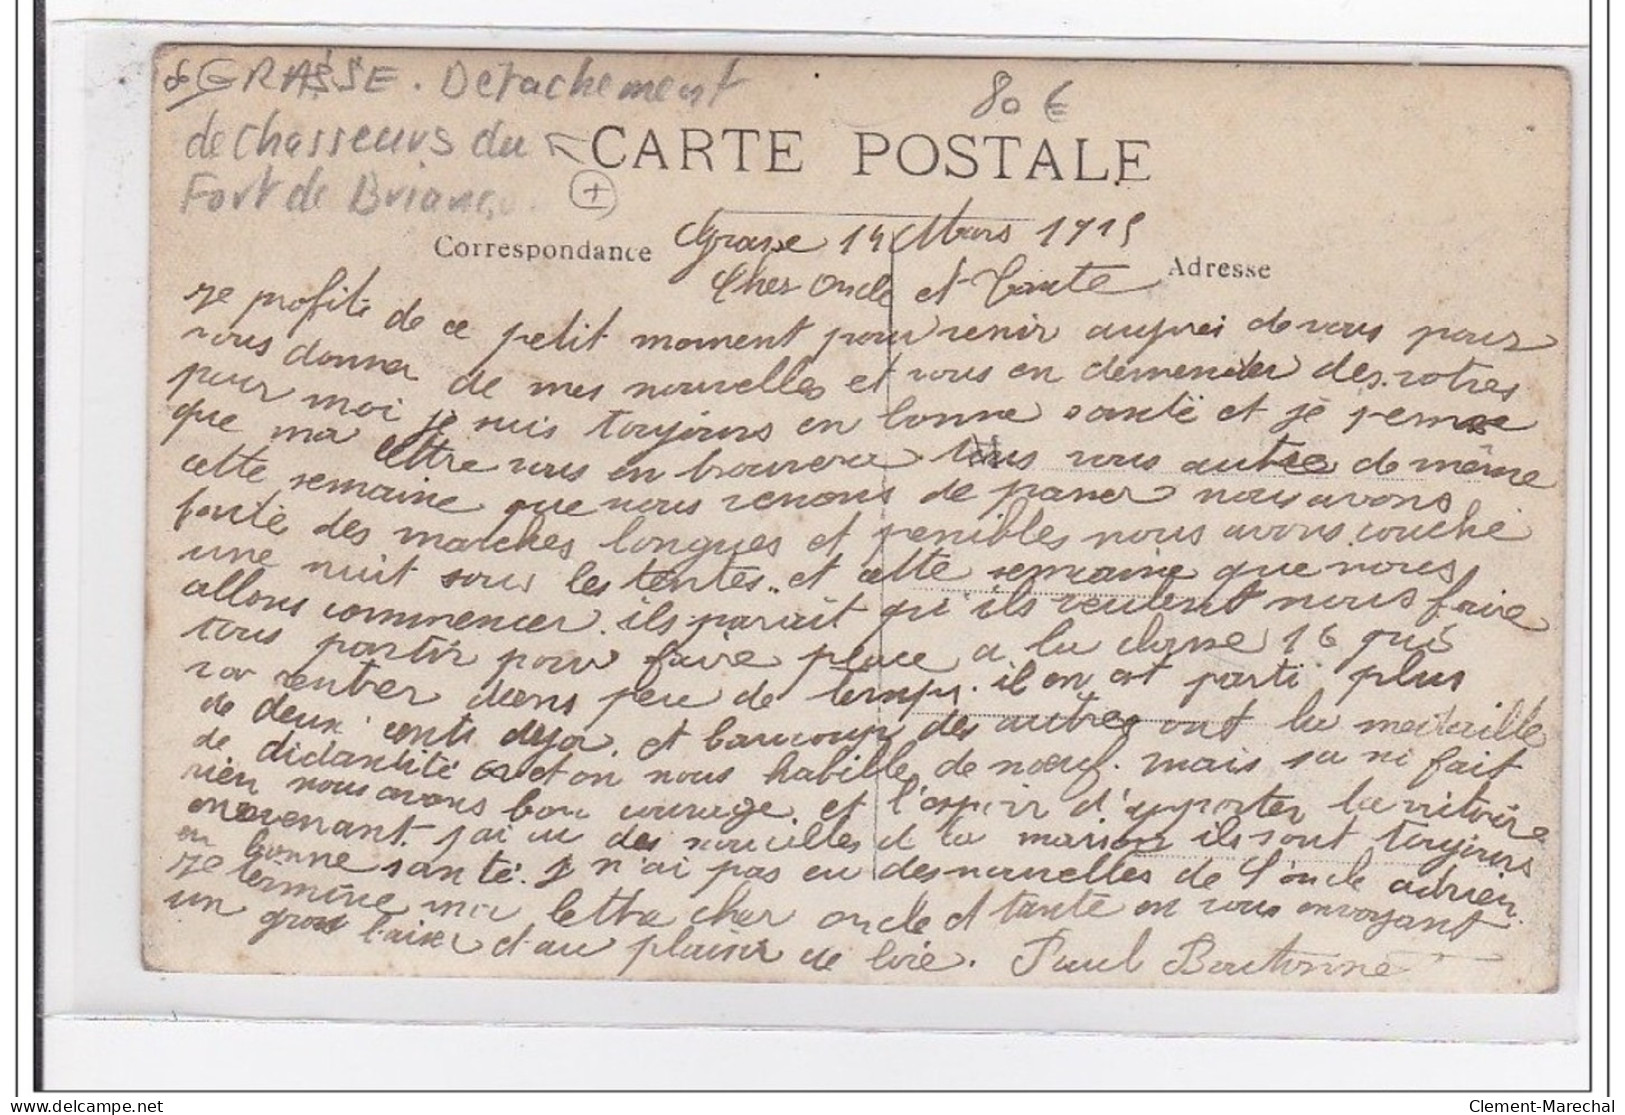 GRASSE. Detachement
80 €
de Chasseurs du
CARTE POSTALE
Fort de Brianço.
+
Correspondance
Grasse 14 Mars 1915
Adresse
Cher Oncle et Tante
Je profite de ce petit moment pour venir auprei de vous pour
vous donner de mes nouvelles et vous en demender des votres
pour moi je suis toujours en bonne santé et je pense
que ma lettre vous en trouvera tous vous autre de même
cette semaine que nous venons de passer nous avons
fante des marches longues et penibles nous avons couché
une nuit sous les tentes.. et cette semaine que nous
allons commencer. ils parait qu'ils veulent nous faire
tous partir pour faire place a la classe 16 qui
va rentrer dans peu de temps. il en est parti plus
de deux cents deja. et baucoup des autres ont la medaille
de didantité et on nous habille de noeuf. mais sa ni fait
rien nous avons bon courage. et l'espoir d'apporter la vitoire
en revenant. j'ai eu des nouvelles d la maison ils sont toujours
en bonne santé. J n'ai pas eu des nouvelles de l'oncle adrien.
Je termine ma lettre cher oncle et tante en vous envoyant
un gros baiser et au plaisir de
Paul Boutonne
Clement-Marechal